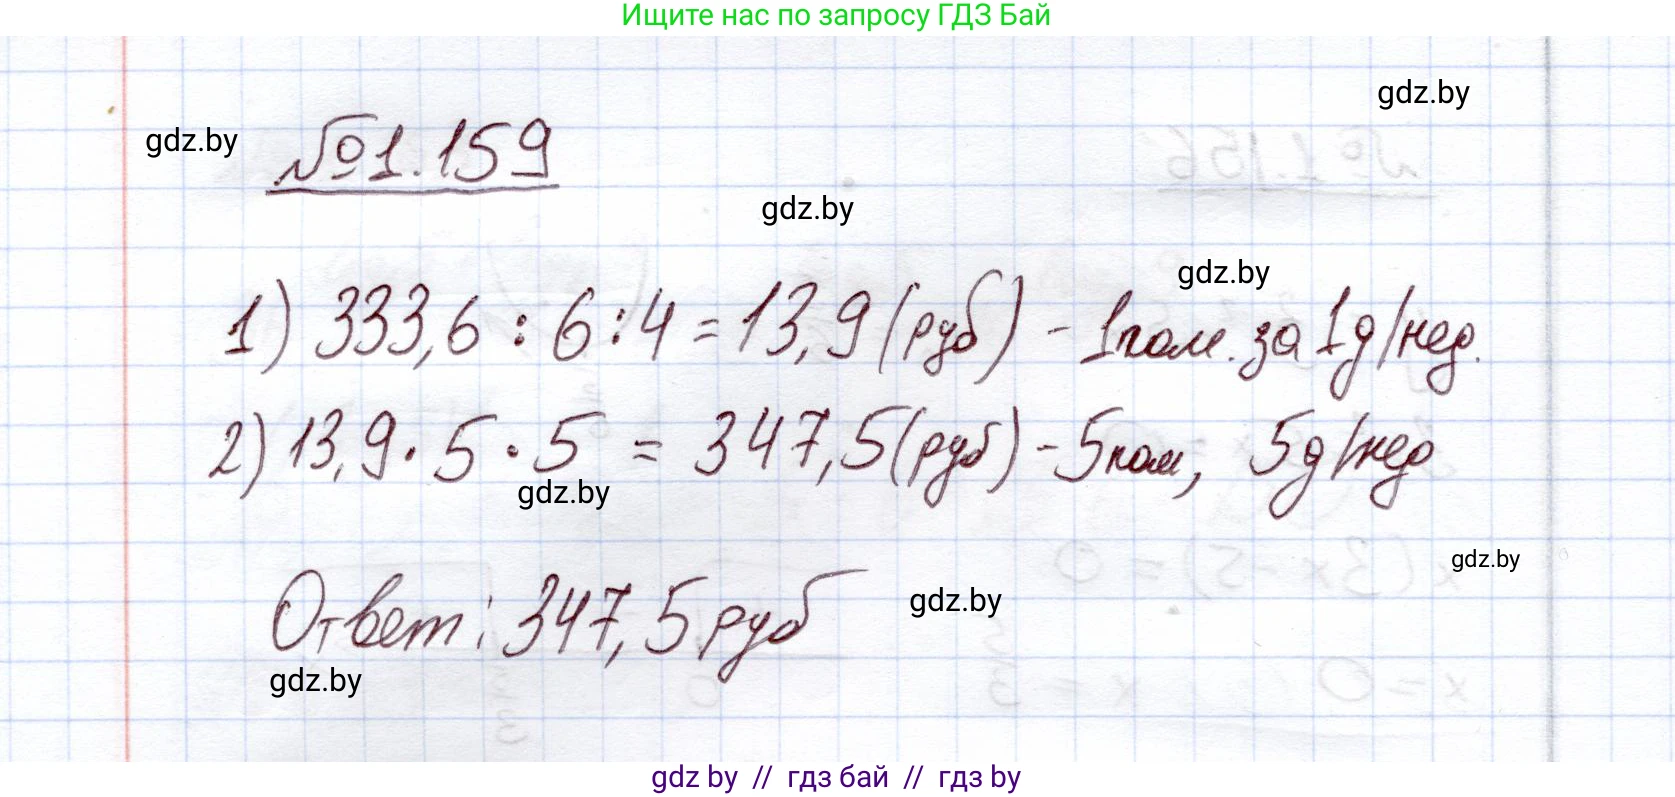 Ищите нас по запросу ГДЗ Бай
gdz.by
gdz.by
№1.159
gdz.by
gdz.by
1) 333,6 : 6 : 4 = 13,9 (руб) - 1 пом. за 1д/нед.
2) 13,9 · 5 · 5 = 347,5 (руб) - 5 пом, 5д/нед
gdz.by
gdz.by
Ответ: 347,5 руб
gdz.by
gdz.by
gdz by // гдз бай // гдз by